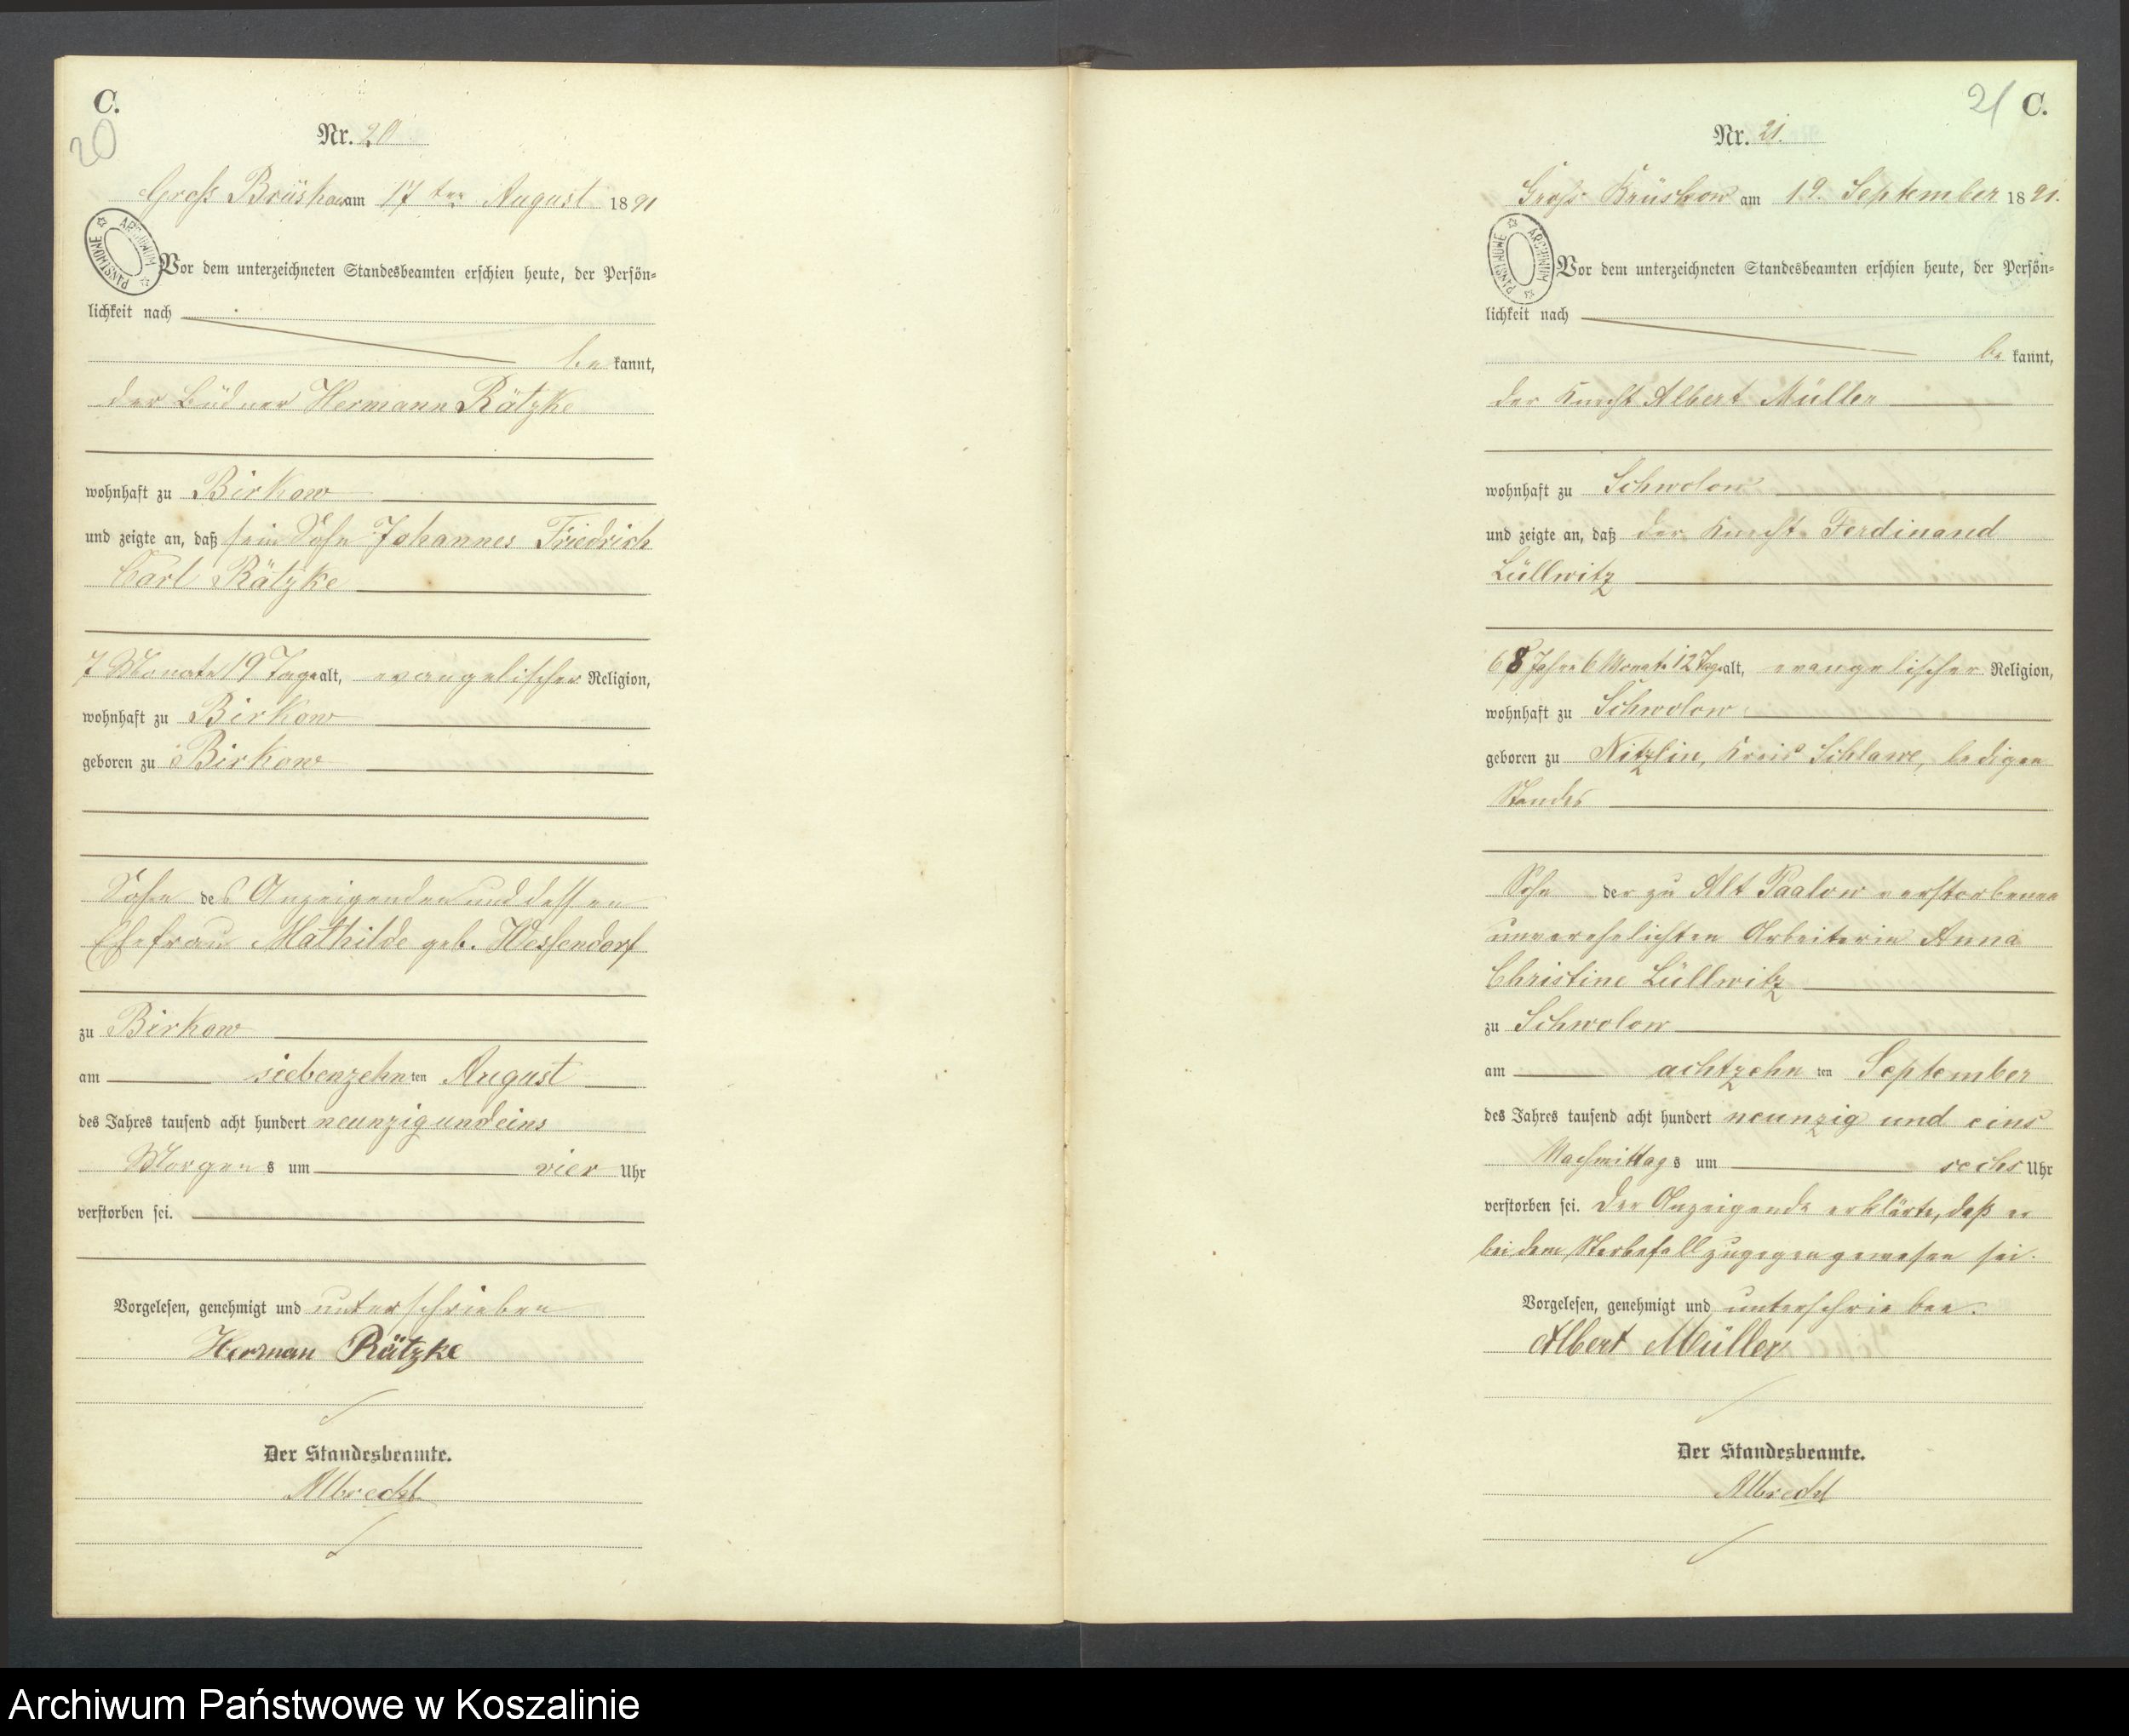 C.
20
Nr. 20
Groß Brüskow am 17ten August 1891
ARCHIWUM PAŃSTWOWE
Vor dem unterzeichneten Standesbeamten erschien heute, der Persön=
lichkeit nach
be kannt,
der Büdner Hermann Rätzke
wohnhaft zu Birkow
und zeigte an, daß sein Sohn Johannes Friedrich
Carl Rätzke
7 Monate 19 Tage alt, evangelischer Religion,
wohnhaft zu Birkow
geboren zu Birkow
Sohn des Anzeigenden und dessen
Ehefrau Mathilde geb. Wessendorf
zu Birkow
am siebenzehn ten August
des Jahres tausend acht hundert neunzig und eins
Morgens um vier Uhr
verstorben sei.
Vorgelesen, genehmigt und unterschrieben
Herman Rätzke
Der Standesbeamte.
Albrecht
21 C.
Nr. 21.
Groß Brüskow am 19. September 1891.
ARCHIWUM PAŃSTWOWE
Vor dem unterzeichneten Standesbeamten erschien heute, der Persön=
lichkeit nach
be kannt,
der Knecht Albert Müller
wohnhaft zu Schwolow
und zeigte an, daß der Knecht Ferdinand
Lüllwitz
68 Jahre 6 Monate 12 Tage alt, evangelischer Religion,
wohnhaft zu Schwolow
geboren zu Nitzlin, Kreis Schlawe, ledigen
Standes
Sohn der zu Alt Paalow verstorbenen
unverehelichten Arbeiterin Anna
Christine Lüllwitz
zu Schwolow
am achtzehn ten September
des Jahres tausend acht hundert neunzig und eins
Nachmittags um sechs Uhr
verstorben sei. Der Anzeigende erklärte, daß er
bei dem Sterbefall zugegen gewesen sei.
Vorgelesen, genehmigt und unterschrieben.
Albert Müller
Der Standesbeamte.
Albrecht
Archiwum Państwowe w Koszalinie